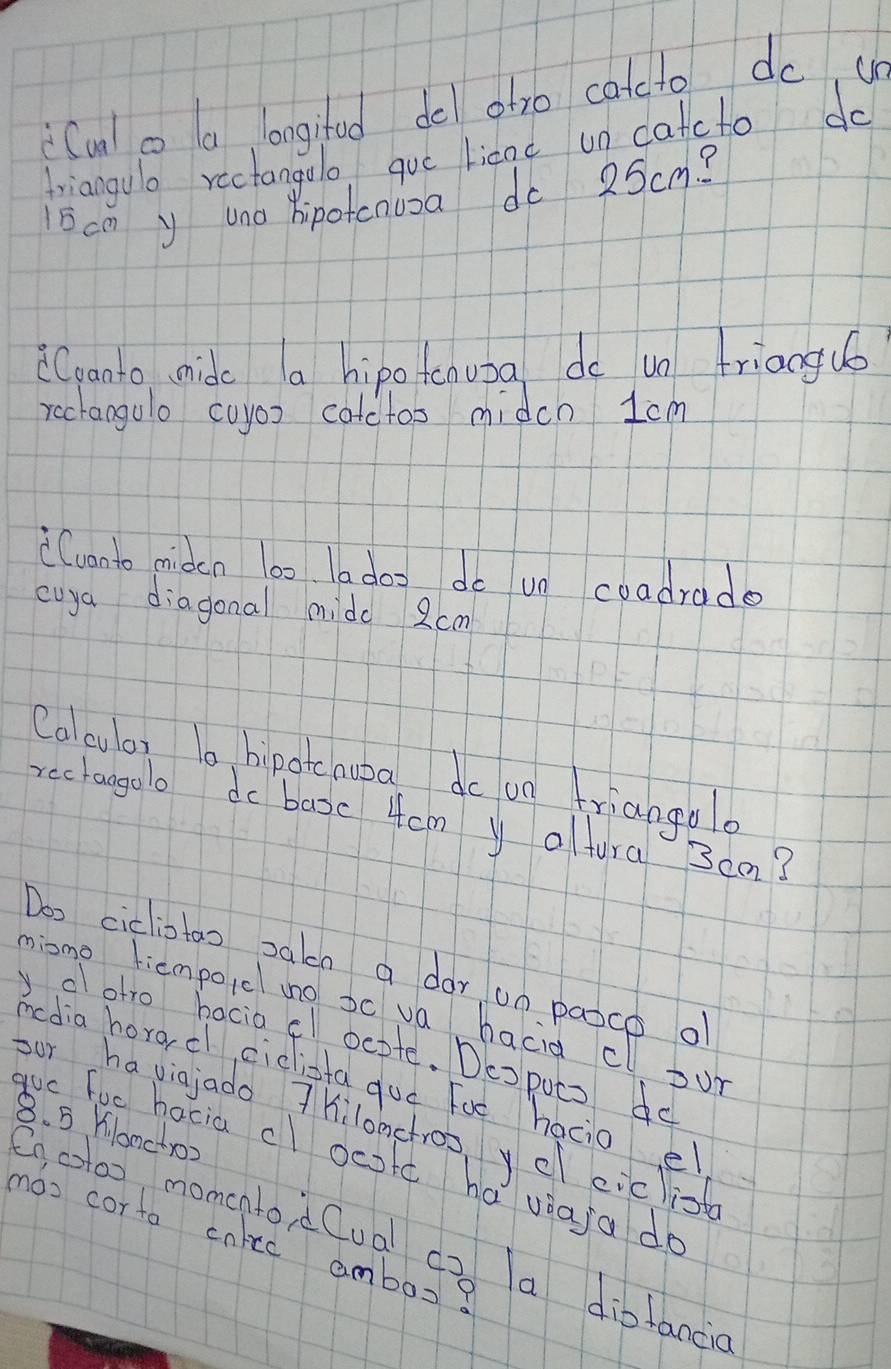 ¿Cual es la longitud del otro cateto de un
triangulo rectangulo que tiene un cateto de
15 cm y una hipotenusa de 25cm?
¿Cuanto mide la hipotenusa de un triangulo
rectangulo cuyos catetos miden 1cm
¿Cuanto miden los lados de un cuadrado
cuya diagonal mide 2cm
Calcular la hipotenusa de un triangulo
rectangulo de base 4cm y altura 3cm?
Dos ciclistas salen a dar un paseo al
mismo tiempo, el uno se va hacia el sur
y el otro hacia el oeste. Despues de
media hora, el ciclista que fue hacia el
sur ha viajado 7 Kilometros, y el ciclista
que fue hacia el oeste ha viajado
8.5 Kilometros
En estos momento, ¿Cual es la distancia
mas corta entre ambos?